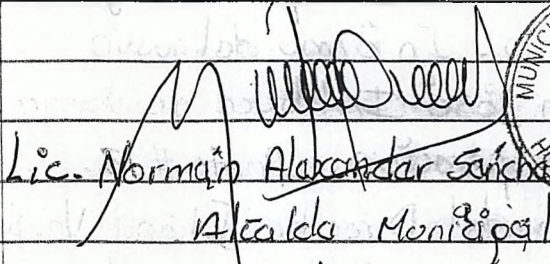 Lic. Norman Alexander Sánche
Alcalde Municipal
MUNICI